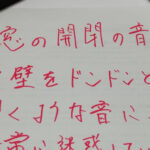 窓の開閉の音
壁をドンドンと
くような音に
常に迷惑してい